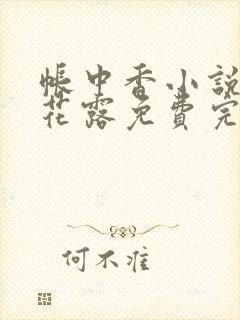 帳中香小說
花露免費完
何不准